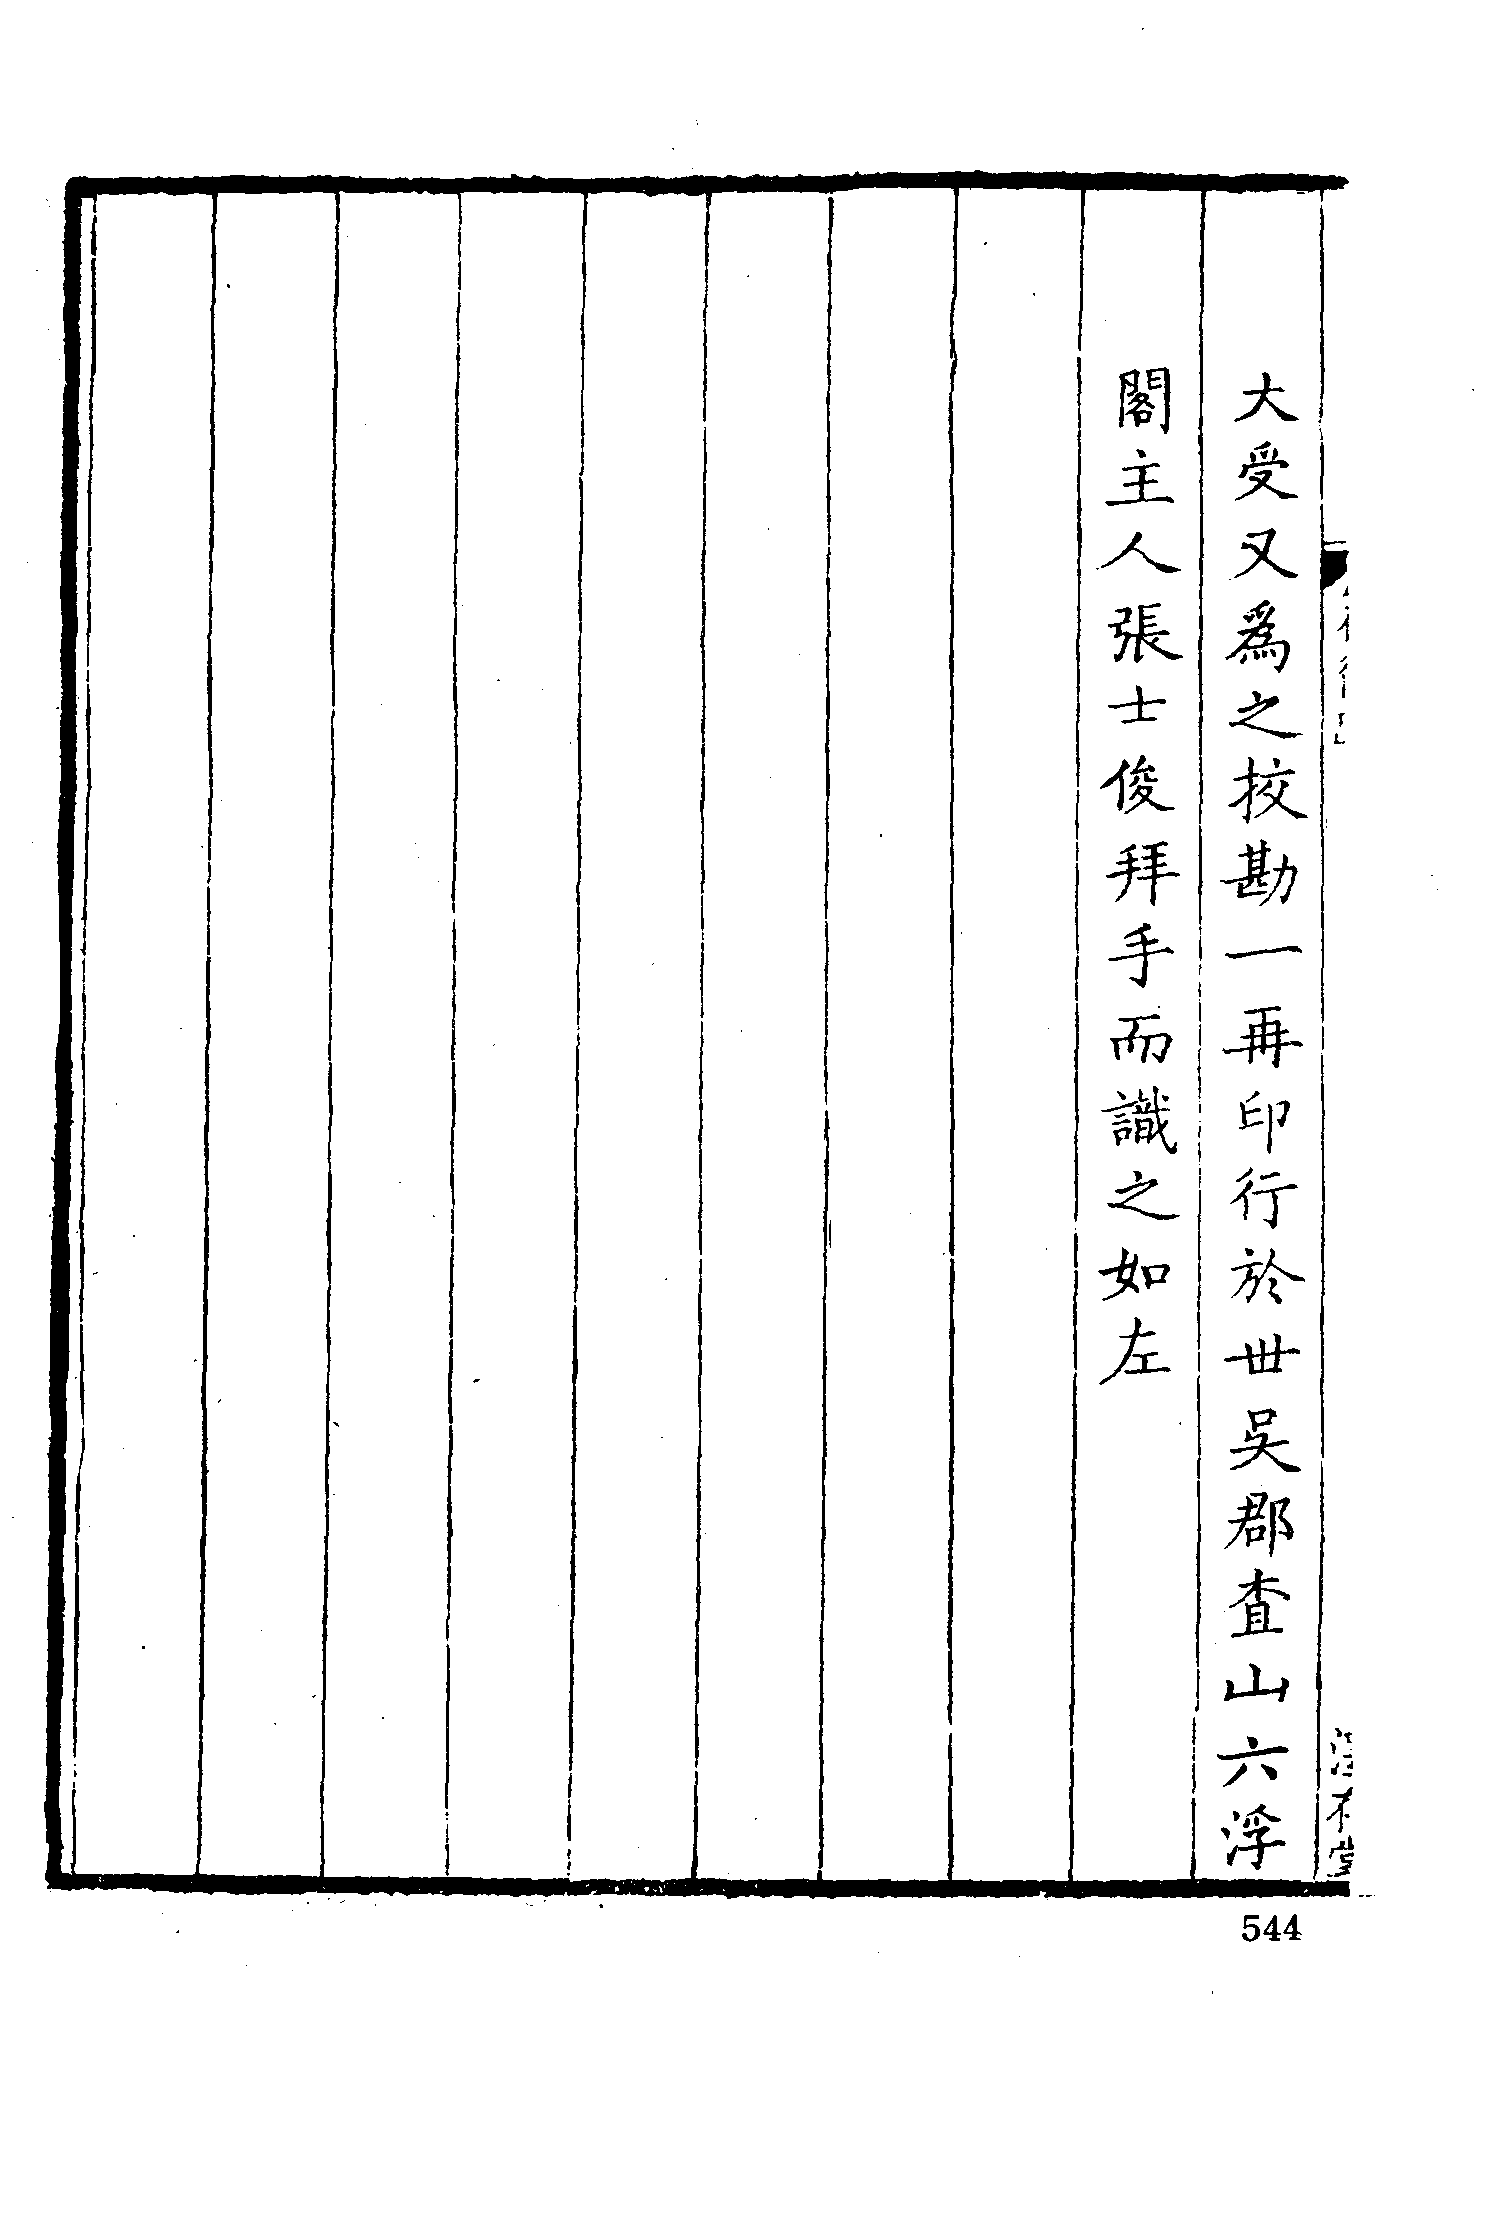 大受又爲之挍勘一再印行於丗吳郡查山六浮
閣主人張士俊拜手而識之如左
544